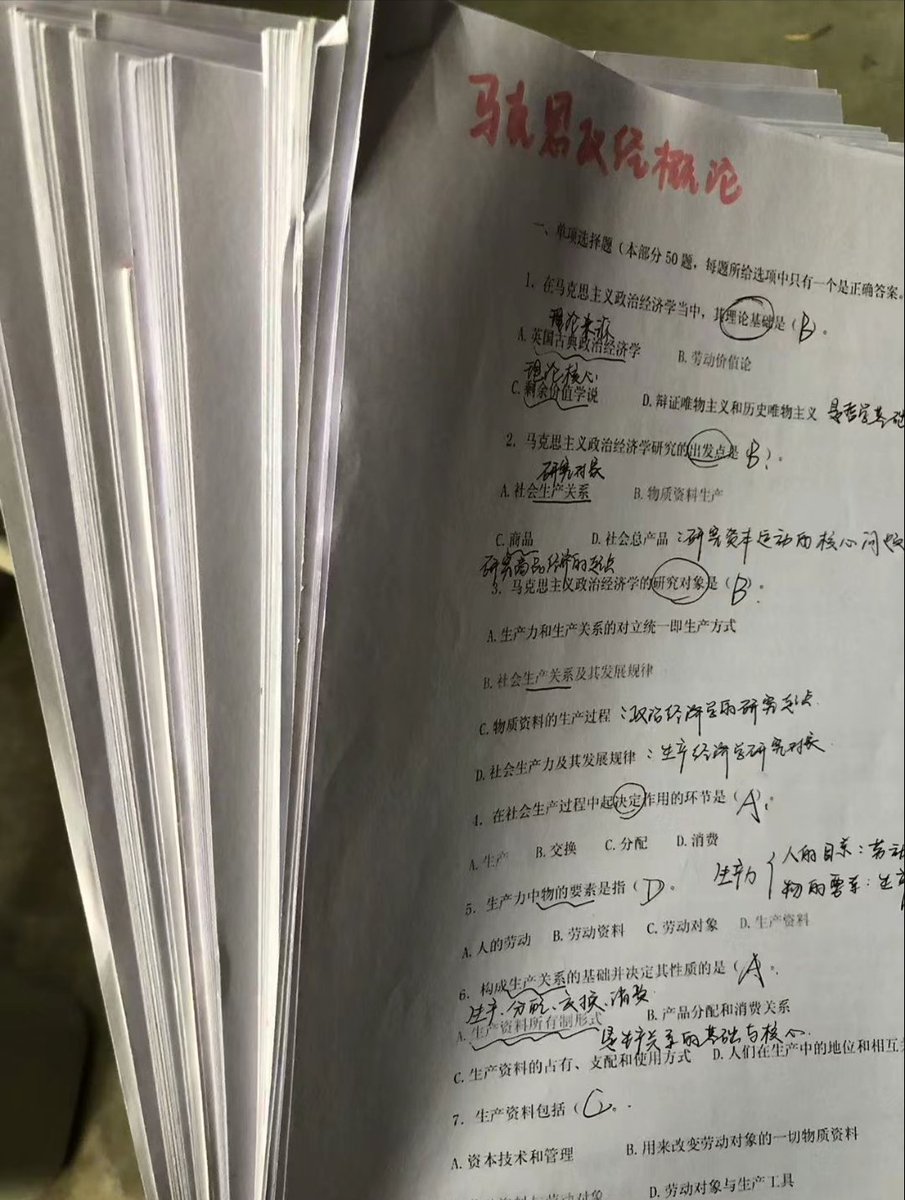 马克思政经概论
一、单项选择题（本部分50题，每题所给选项中只有一个是正确答案。
1. 在马克思主义政治经济学当中，其理论基础是（B）。
理论来源
A.英国古典政治经济学 B.劳动价值论
理论核心
C.剩余价值学说 D.辩证唯物主义和历史唯物主义 是哲学基础
2. 马克思主义政治经济学研究的出发点是（B）。
研究对象
A.社会生产关系 B.物质资料生产
C.商品 D.社会总产品：研究资本运动的核心问题
研究商品经济的起点
3. 马克思主义政治经济学的研究对象是（B）。
A.生产力和生产关系的对立统一即生产方式
B.社会生产关系及其发展规律
C.物质资料的生产过程：政治经济学的研究起点
D.社会生产力及其发展规律：生产经济学研究对象
4. 在社会生产过程中起决定作用的环节是（A）。
A.生产 B.交换 C.分配 D.消费
生产力 人的因素：劳动
物的要素：生产
5. 生产力中物的要素是指（D）。
A.人的劳动 B.劳动资料 C.劳动对象 D.生产资料
6. 构成生产关系的基础并决定其性质的是（A）。
生产、分配、交换、消费
A.生产资料所有制形式 B.产品分配和消费关系
是生产关系的基础与核心
C.生产资料的占有、支配和使用方式 D.人们在生产中的地位和相互
7. 生产资料包括（C）。
A.资本技术和管理 B.用来改变劳动对象的一切物质资料
与劳动对象 D.劳动对象与生产工具